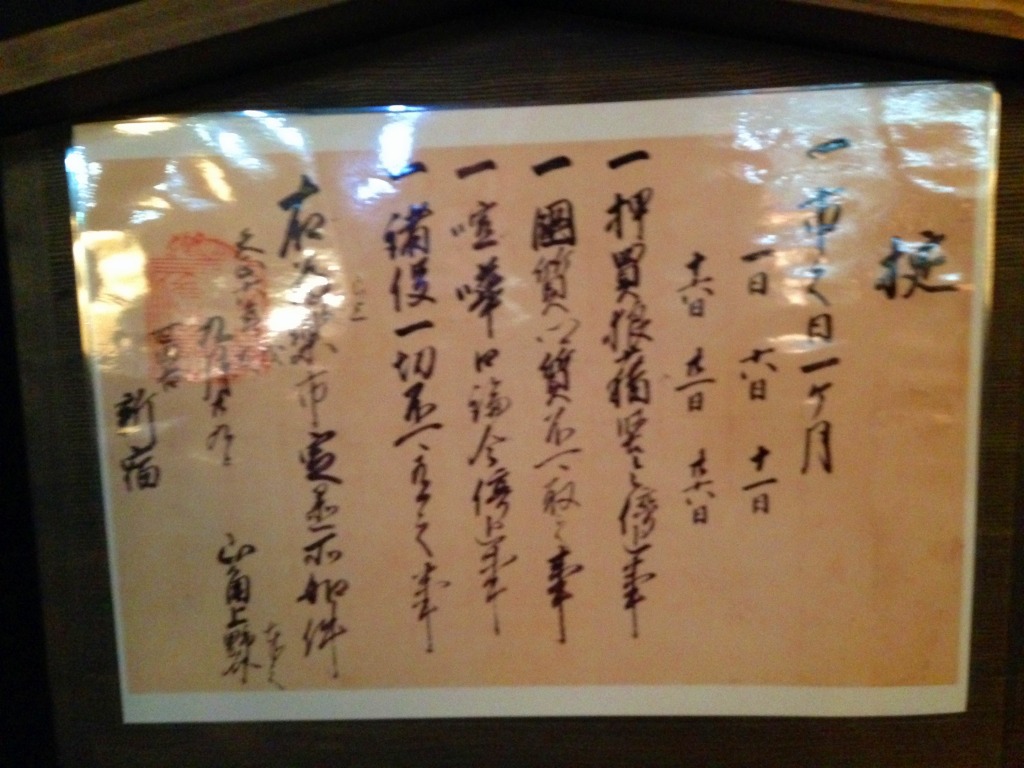 掟
一 市之日一ヶ月
一日 六日 十一日
十六日 廿一日 廿六日
一 押買狼藉堅令停止事
一 國質郷質不可取之事
一 喧嘩口論令停止事
一 諸役一切不可有之事
已上
右為楽市定置所如件
天正六年
九月廿九日
山角上野介
奉之
新宿